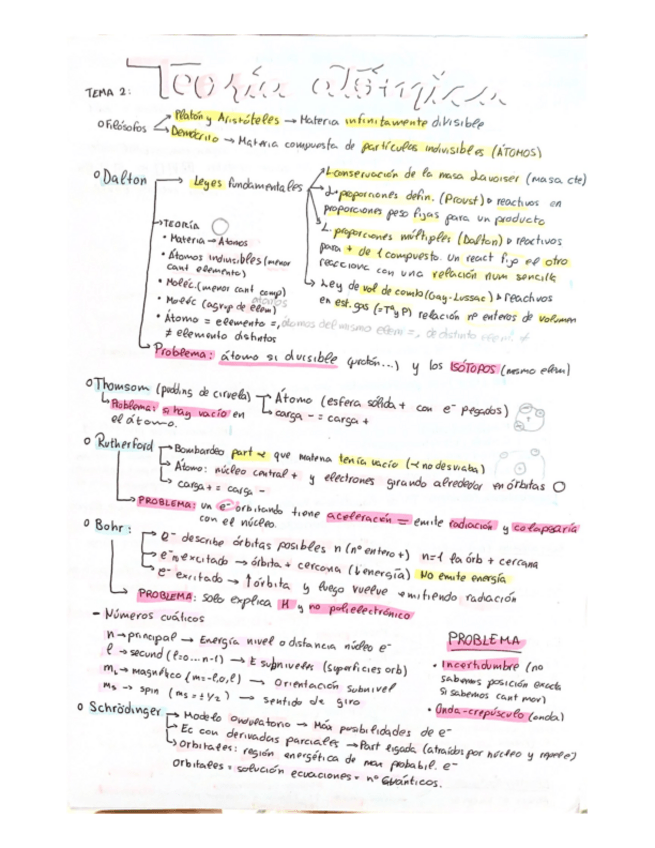 TEMA 2: Teoría atómica
Filósofos → Platón y Aristóteles → Materia infinitamente divisible
→ Demócrito → Materia compuesta de partículas indivisibles (ÁTOMOS)
Dalton → Leyes fundamentales
L. conservación de la masa Lavoiser (masa cte)
L. proporciones defin. (Proust) reactivos en
proporciones peso fijas para un producto
L. proporciones múltiples (Dalton) reactivos
para + de 1 compuesto. Un react fijo el otro
reacciona con una relación num sencilla
Ley de vol de comb (Gay-Lussac) reactivos
en est. gas (=TªyP) relación nº enteros de volumen
→ TEORÍA
• Materia → Átomos
• Átomos indivisibles (menor
cant elemento)
• Moléc. (menor cant comp)
• Moléc (agrup de elem) átomos
• Átomo = elemento =, átomos del mismo elem =, de distinto elem. ≠
≠ elemento distintos
Problema: átomo si divisible (protón...) y los ISÓTOPOS (mismo elem)
Thomsom (pudding de ciruela) → Átomo (esfera sólida + con e⁻ pegados)
→ carga - = carga +
Problema: si hay vacío en
el átomo.
Rutherford → Bombardeo part α que materia tenía vacío (α no desviaba)
→ Átomo: núcleo central + y electrones girando alrededor en órbitas
→ carga + = carga -
PROBLEMA: un e⁻ orbitando tiene aceleración = emite radiación y colapsaría
con el núcleo.
Bohr: → e⁻ describe órbitas posibles n (nº entero +) n=1 la órb + cercana
→ e⁻ no excitado → órbita + cercana (↓energía) No emite energía
→ e⁻ excitado → ↑órbita y luego vuelve emitiendo radiación
PROBLEMA: solo explica H y no polielectrónico
- Números cuáticos
n → principal → Energía nivel o distancia núcleo e⁻
l → secund (l=0...n-1) → E subniveles (superficies orb)
mₗ → magnético (m=-l,0,l) → Orientación subnivel
mₛ → spin (ms=±1/2) → sentido de giro
PROBLEMA
• Incertidumbre (no
sabemos posición exacta
si sabemos cant mov)
• Onda-crepúsculo (onda)
Schrödinger → Modelo ondulatorio → Máx posibilidades de e⁻
→ Ec con derivadas parciales → Part ligada (atraídos por núcleo y repele)
→ Orbitales: región energética de max probabil. e⁻
Orbitales = solución ecuaciones = nº cuánticos.